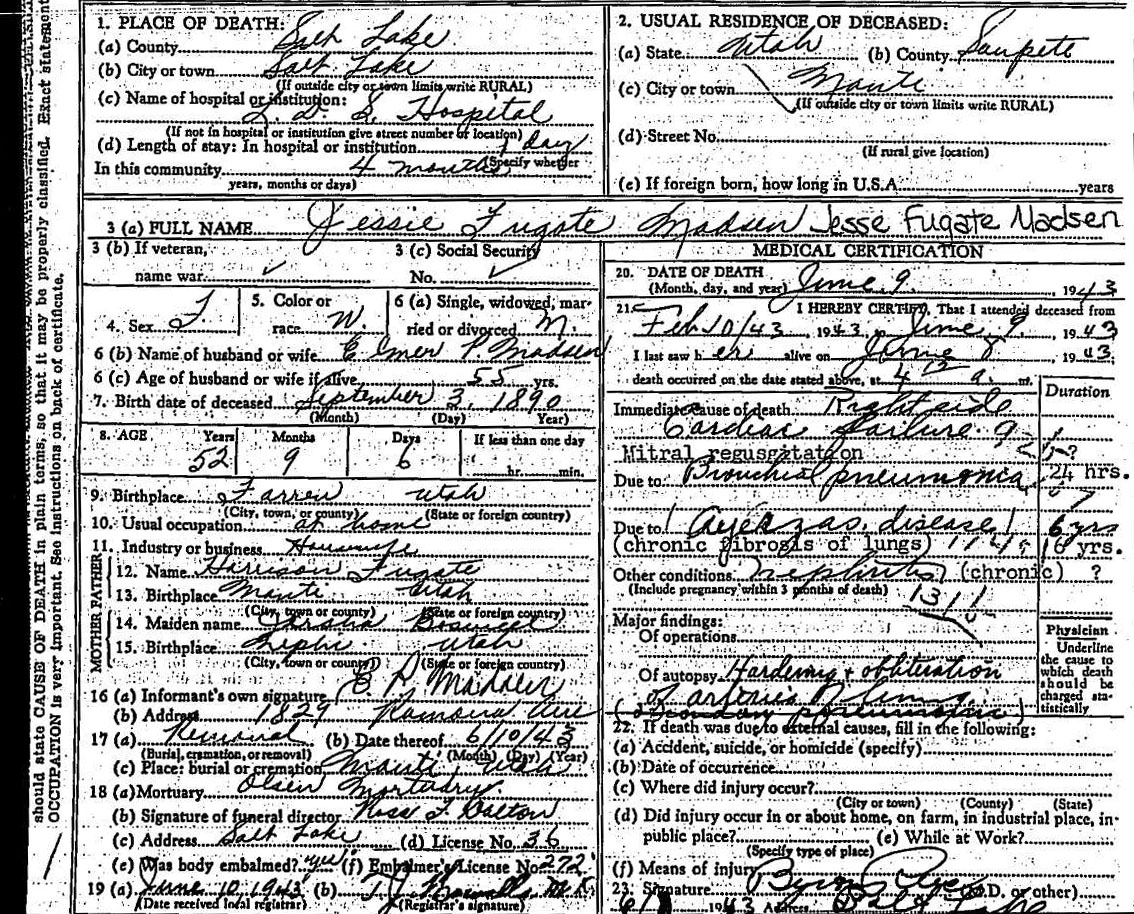 should state CAUSE OF DEATH in plain terms, so that it may be properly classified. Exact statement
OCCUPATION is very important. See instructions on back of certificate.
1. PLACE OF DEATH:
(a) County Salt Lake
(b) City or town Salt Lake
(If outside city or town limits write RURAL)
(c) Name of hospital or institution:
L. D. S. Hospital
(If not in hospital or institution give street number or location)
(d) Length of stay: In hospital or institution 1 day
(Specify whether
In this community 4 months
years, months or days)
2. USUAL RESIDENCE OF DECEASED:
(a) State Utah (b) County Sanpete
(c) City or town Manti
(If outside city or town limits write RURAL)
(d) Street No.
(If rural give location)
(e) If foreign born, how long in U.S.A. years
3 (a) FULL NAME Jessie Fugate Madsen Jesse Fugate Madsen
3 (b) If veteran, 3 (c) Social Security
name war No.
4. Sex F 5. Color or race W. 6 (a) Single, widowed, married or divorced M.
6 (b) Name of husband or wife Elmer P. Madsen
6 (c) Age of husband or wife if alive 55 yrs.
7. Birth date of deceased September 3, 1890
(Month) (Day) (Year)
8. AGE Years Months Days If less than one day
52 9 6 hr. min.
9. Birthplace Utah
(City, town, or county) (State or foreign country)
10. Usual occupation at home
11. Industry or business Housewife
FATHER
12. Name Harrison Fugate
13. Birthplace Manti Utah
(City, town or county) (State or foreign country)
MOTHER
14. Maiden name
15. Birthplace Nephi Utah
(City, town or county) (State or foreign country)
16 (a) Informant's own signature E. P. Madsen
(b) Address 1829 Ramona Ave
17 (a) Removal (b) Date thereof 6/10/43
(Burial, cremation, or removal) (Month) (Day) (Year)
(c) Place: burial or cremation Manti, Utah
18 (a) Mortuary Olsen Mortuary
(b) Signature of funeral director
(c) Address Salt Lake (d) License No. 36
(e) Was body embalmed? yes (f) Embalmer's License No. 272
19 (a) June 10 1943 (b)
(Date received local registrar) (Registrar's signature)
MEDICAL CERTIFICATION
20. DATE OF DEATH
(Month, day, and year) June 9 1943
21. I HEREBY CERTIFY, That I attended deceased from
Feb 10/43 1943, to June 9, 1943
I last saw her alive on June 8, 1943
death occurred on the date stated above, at 4 a. m.
Duration
Immediate cause of death Right side
Cardiac failure
Mitral regusgatation ?
Due to Bronchial pneumonia 24 hrs.
Due to Ayerzas disease 6 yrs
(chronic fibrogis of lungs) yrs.
Other conditions nephritis (chronic) ?
(Include pregnancy within 3 months of death)
Major findings:
Of operations
Of autopsy
of arteries
Physician
Underline
the cause to
which death
should be
charged sta-
tistically
22. If death was due to external causes, fill in the following:
(a) Accident, suicide, or homicide (specify)
(b) Date of occurrence
(c) Where did injury occur?
(City or town) (County) (State)
(d) Did injury occur in or about home, on farm, in industrial place, in
public place? (e) While at Work?
(Specify type of place)
(f) Means of injury
23. Signature (M.D. or other)
1943 Address Salt Lake